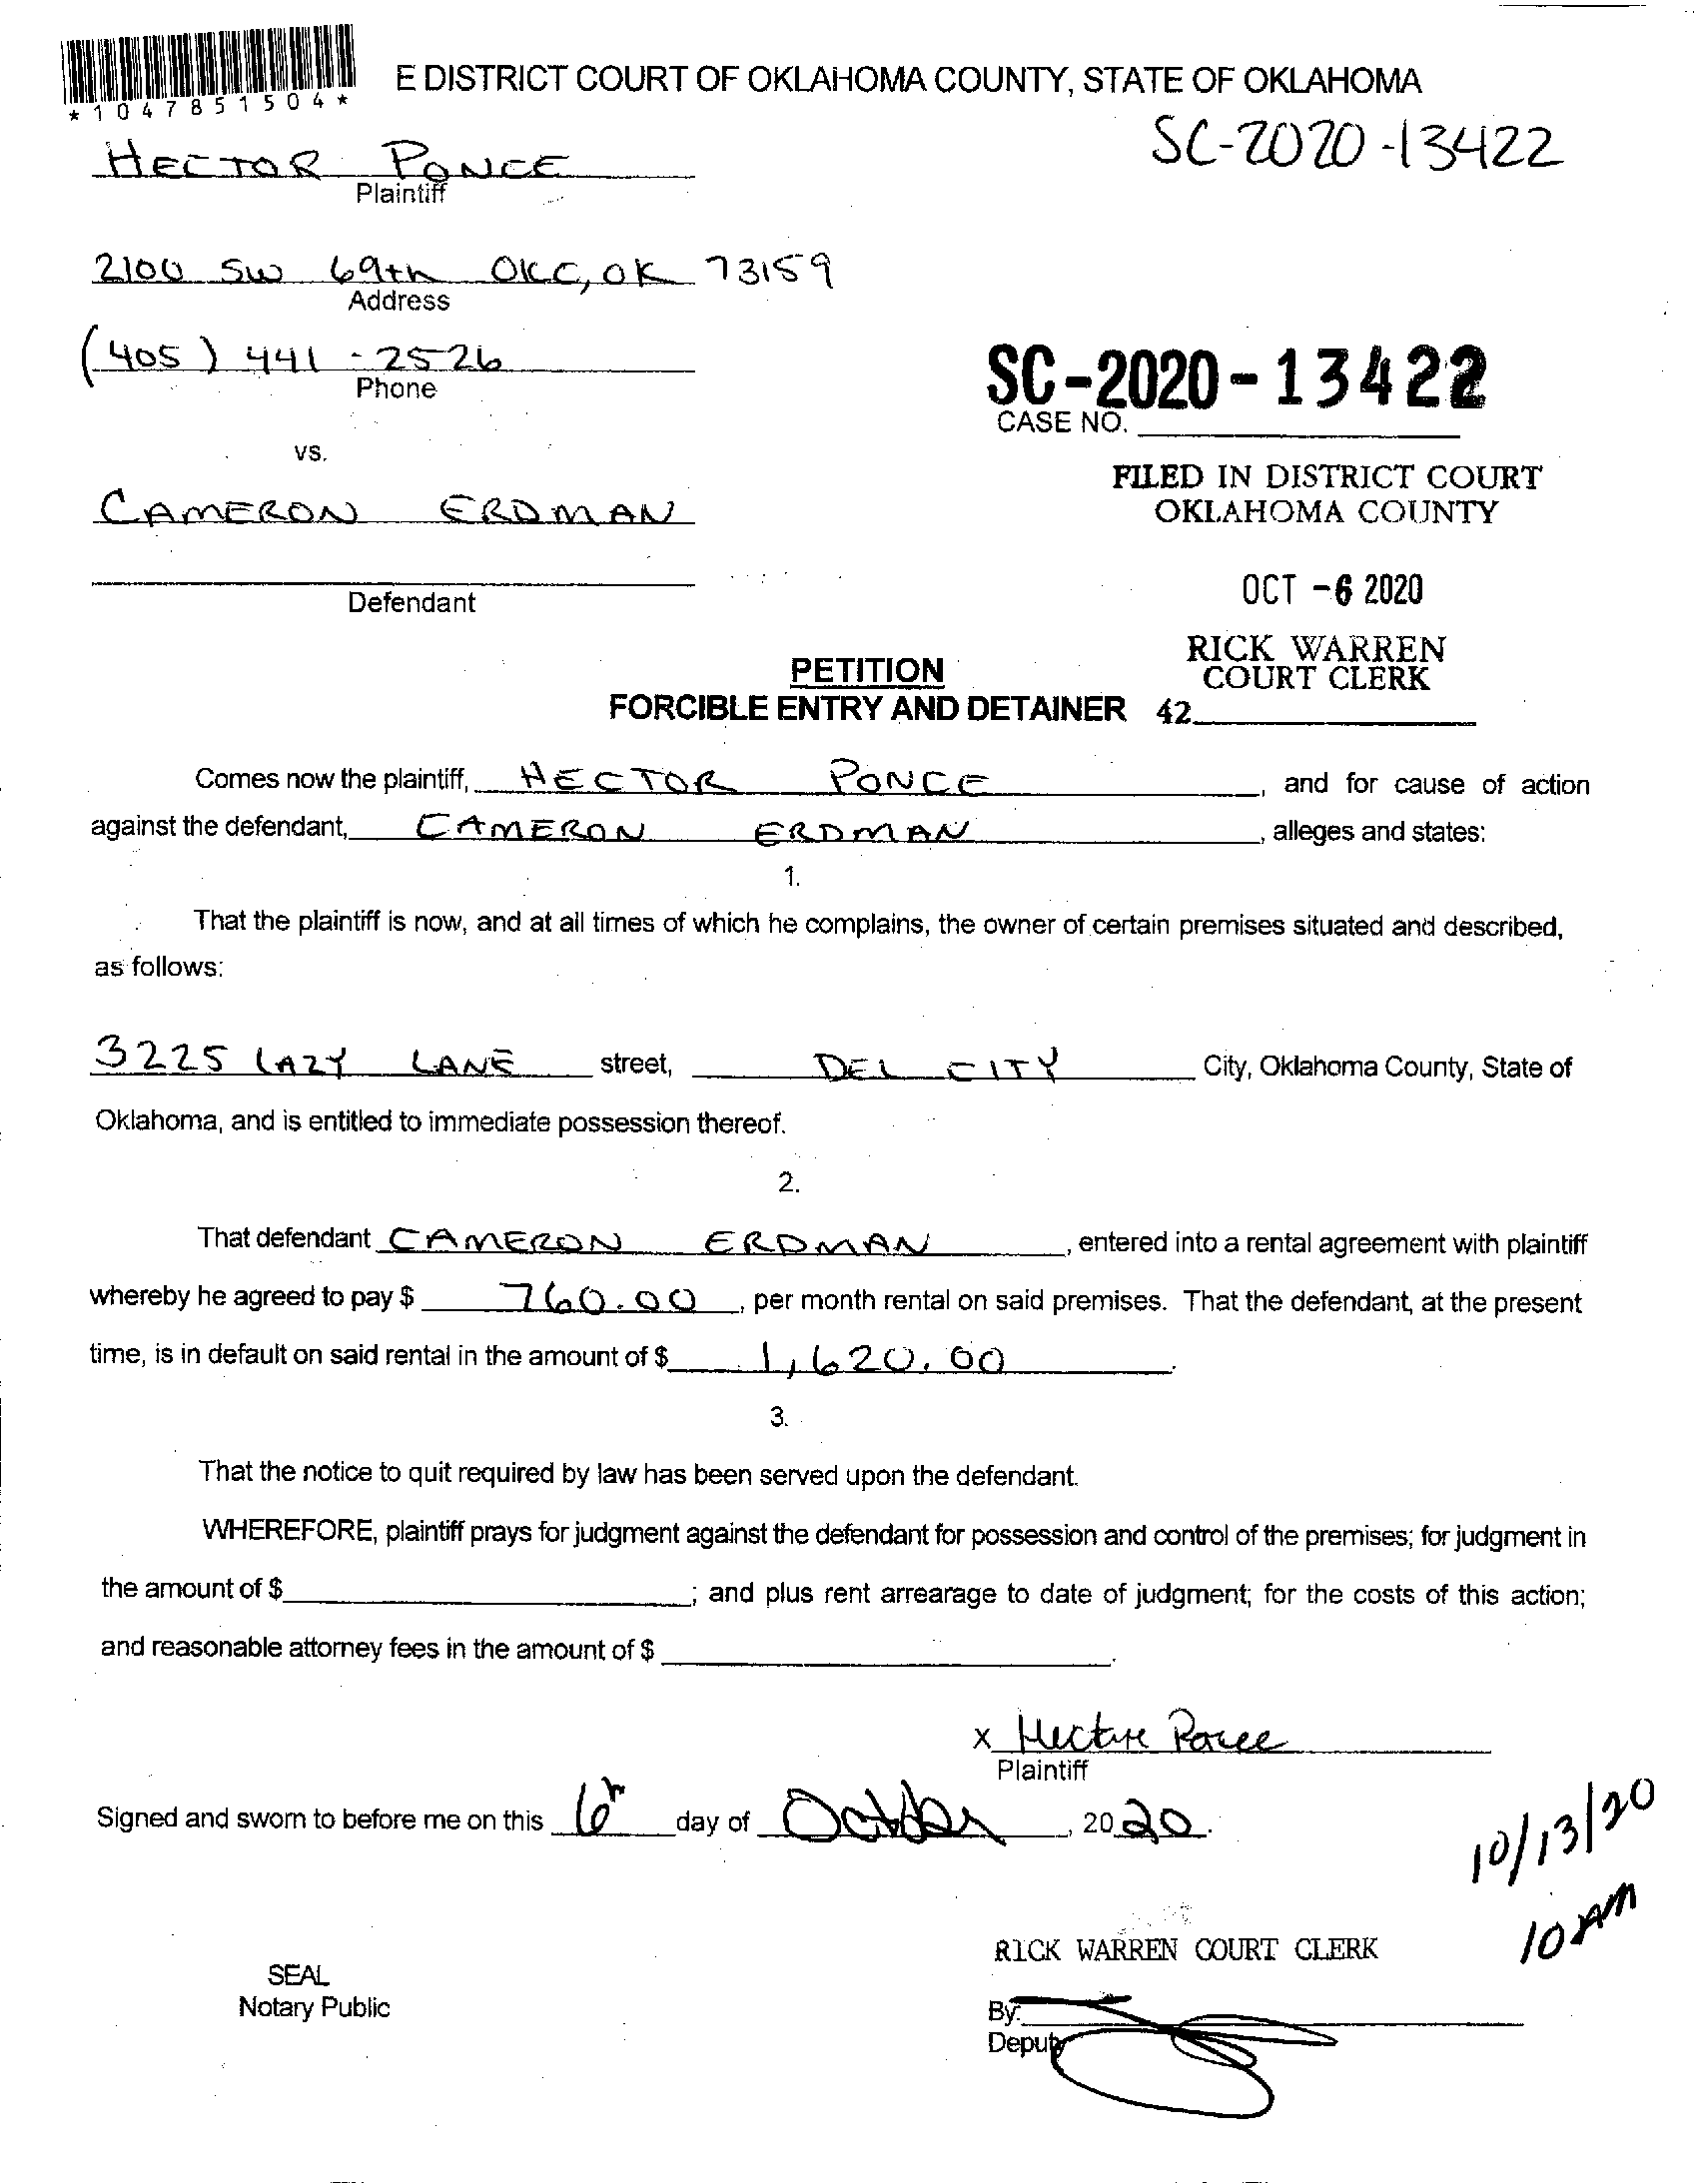 *1047851504*
E DISTRICT COURT OF OKLAHOMA COUNTY, STATE OF OKLAHOMA
SC-2020-13422
HECTOR PONCE
Plaintiff
2100 SW 69th OKC, OK 73159
Address
(405) 441-2526
Phone
SC-2020-13422
CASE NO.
vs.
FILED IN DISTRICT COURT
OKLAHOMA COUNTY
CAMERON ERDMAN
Defendant
OCT -6 2020
RICK WARREN
COURT CLERK
42
PETITION
FORCIBLE ENTRY AND DETAINER
Comes now the plaintiff, HECTOR PONCE, and for cause of action
against the defendant, CAMERON ERDMAN, alleges and states:
1.
That the plaintiff is now, and at all times of which he complains, the owner of certain premises situated and described,
as follows:
3225 LAZY LANE street, DEL CITY City, Oklahoma County, State of
Oklahoma, and is entitled to immediate possession thereof.
2.
That defendant CAMERON ERDMAN, entered into a rental agreement with plaintiff
whereby he agreed to pay $ 760.00, per month rental on said premises. That the defendant, at the present
time, is in default on said rental in the amount of $ 1,620.00.
3.
That the notice to quit required by law has been served upon the defendant.
WHEREFORE, plaintiff prays for judgment against the defendant for possession and control of the premises; for judgment in
the amount of $ ; and plus rent arrearage to date of judgment; for the costs of this action;
and reasonable attorney fees in the amount of $ .
x Hector Ponce
Plaintiff
Signed and sworn to before me on this 6th day of October, 2020.
10/13/20
10 AM
RICK WARREN COURT CLERK
SEAL
Notary Public
By:
Deputy